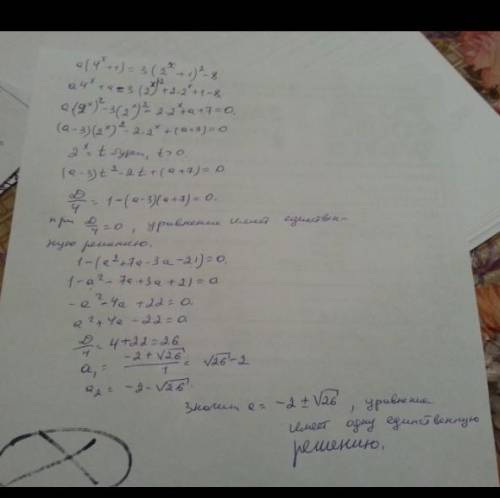 a(4ˣ+1) = 3(2ˣ+1)²-8
a4ˣ+a=3(2ˣ)²+2·2ˣ+1-8
a(2ˣ)²-3(2ˣ)²-2·2ˣ+a+7=0.
(a-3)(2ˣ)²-2·2ˣ+(a+7)=0
2ˣ=t будет, t>0.
(a-3)t²-2t+(a+7)=0
D/4=1-(a-3)(a+7)=0.
при D/4=0, уравнение имеет единствен-
ную решению.
1-(a²+7a-3a-21)=0.
1-a²-7a+3a+21=0
-a²-4a+22=0.
a²+4a-22=0.
D/4=4+22=26
a₁=(-2+√26)/1=√26-2
a₂=-2-√26.
Значит a=-2±√26, уравнение
имеет одну единственную
решению.